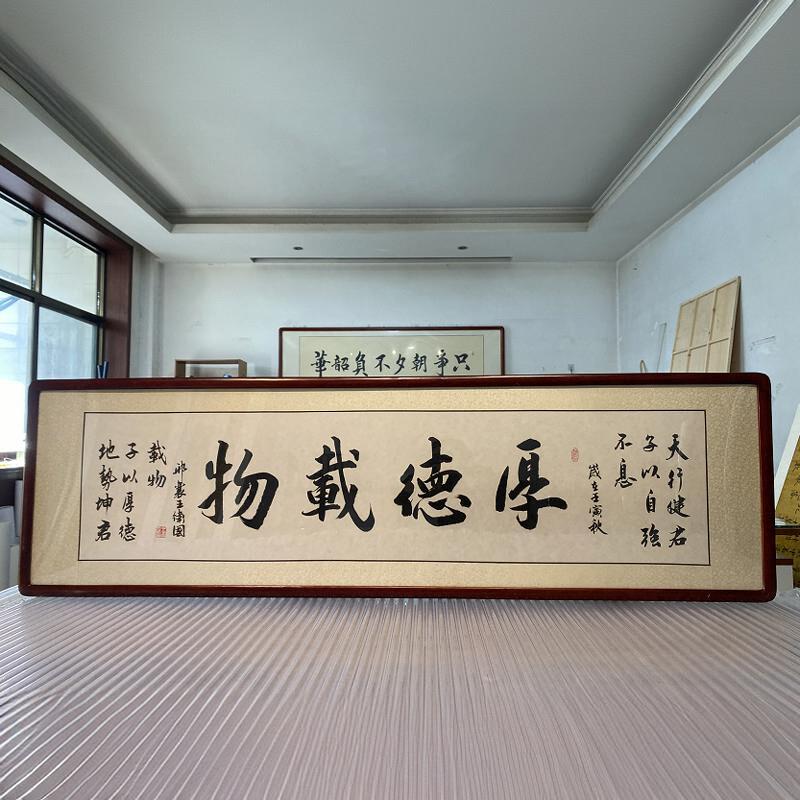 只爭朝夕不負韶華
天行健君
子以自強
不息
歲在壬寅秋
厚德載物
邢襄王衛國
地勢坤君
子以厚德
載物